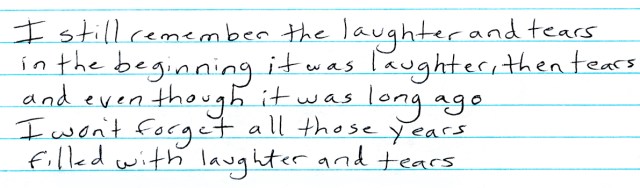 I still remember the laughter and tears
in the beginning it was laughter, then tears
and even though it was long ago
I won't forget all those years
filled with laughter and tears